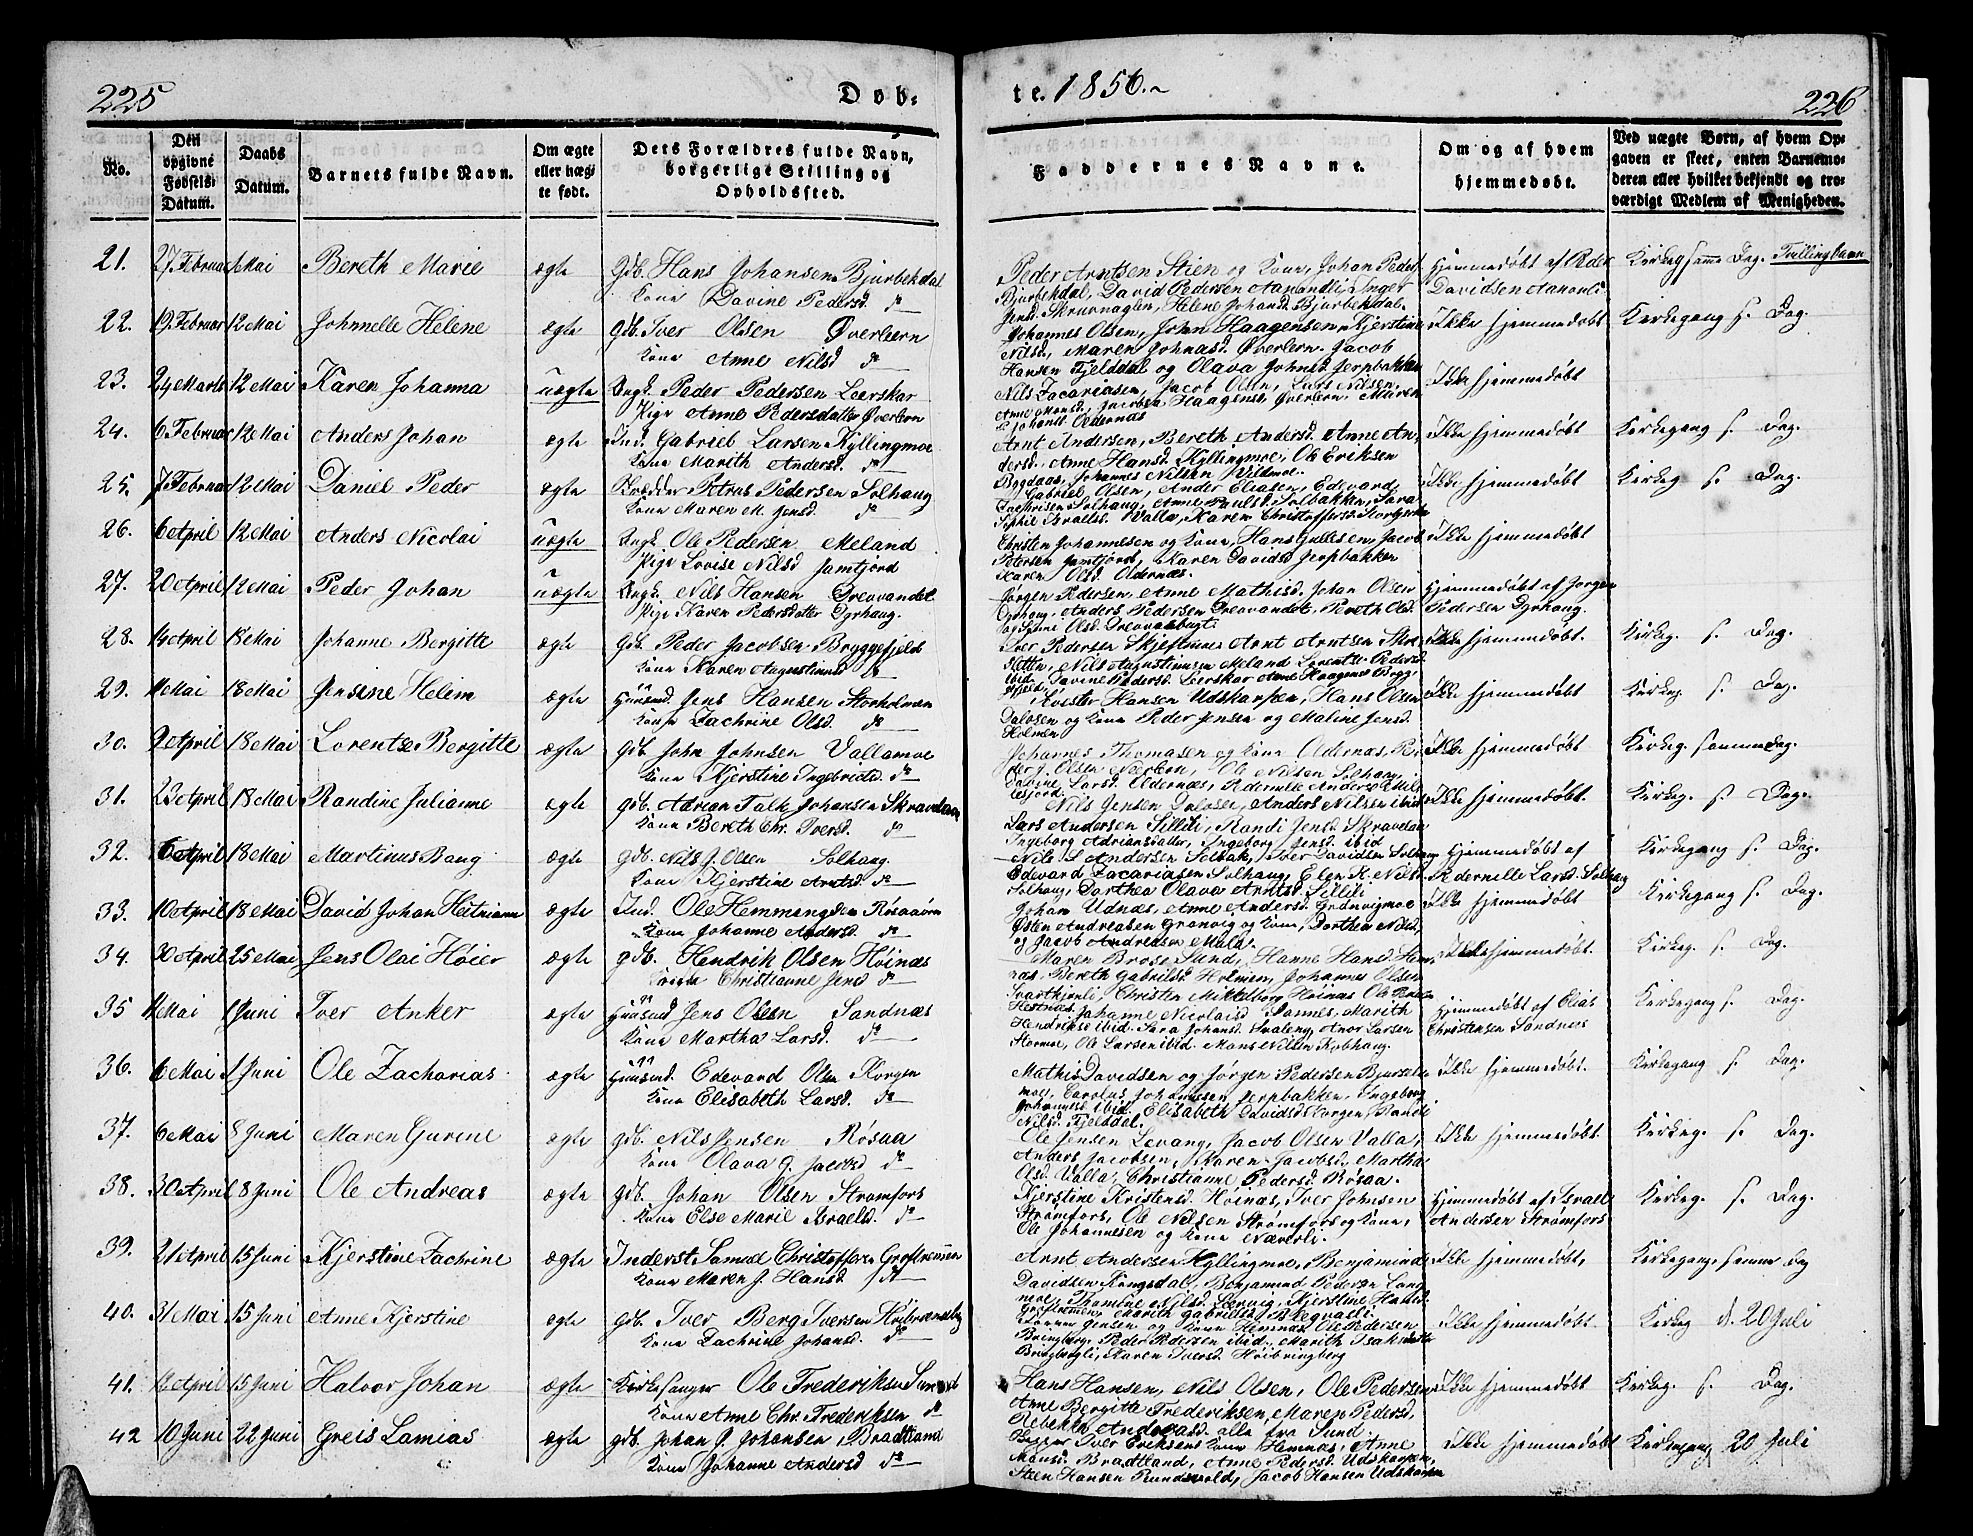 225
Døb=
te. 1856.~
226
No.
Den opgivne Fødsels= Datum.
Daabs Datum.
Barnets fulde Navn.
Om ægte eller uæg= te født.
Dets Forældres fulde Navn, borgerlige Stilling og Opholdssted.
Faddernes Navne.
Om og af hvem hjemmedøbt.
Ved uægte Børn, af hvem Op= gaven er skeet, enten Barnemo= deren eller hvilket bekjendt og tro= værdigt Medlem af Menigheden.
21. 27 Februar 1 Mai Bereth Marie ægte Gdb. Hans Johansen Bjurbekdal
Kone Davine Pedersd. do
Peder Arntsen Stien og Kone, Johan Peders.
Bjurbekdal, David Pedersen Aanonli, Inger
Jensd. Skravnagen, Helene Johansd. Bjurbekdal.
Hjemmedøbt af Peder
Davidsen Aanonli.
Kirkeg samme Dag. Tvillingbarn
22. 19 Februar 12 Mai Johnelle Helene ægte Gdb. Iver Olsen Øverleern
Kone Anne Nilsd. do
Johannes Olsen, John Haagensen, Kjerstine
Nilsd, Maren Johnasd. Øverlern. Jacob
Hansen Fjeldal og Olava Johnsd. Jerpbakken
Ikke hjemmedøbt Kirkegang s. Dag.
23. 24 Marts 12 Mai Karen Johanna uægte Ungk. Peder Pedersen Leerskar
Pige Anne Pedersdatter Øverlern
Nils Zacariasen, Jacob Olsen, Lars Nilsen,
Ikke hjemmedøbt
24. 6 Februar 12 Mai Anders Johan ægte Ind. Gabriel Larsen Kyllingmoe
Kone Marith Andersd. do
Arnt Andersen, Bereth Andersd. Anne An,
dersd., Anne Hansd. Kyllingmoe, Ole Eriksen
Bygdaas, Johannes Nilsen Vildmoe.
Ikke hjemmedøbt Kirkegang s. Dag.
25. 7 Februar 12 Mai Daniel Peder ægte Petrus Pedersen Solhaug
Kone Maren M. Jensd. do
Gabriel Olsen, Ander Eliasen, Edevard
Solhaug, Anne Paulsd. Solbakken, Sara
Sophie Israelsd. Valla, Karen Christoffersd.
Ikke hjemmedøbt Kirkeg s. Dag.
26. 6 April 12 Mai Anders Nicolai uægte Ungk. Ole Pedersen Meland
Pige Lovise Nilsd Jamtjord
Christen Johannesen og Kone, Hans Gullesen, Jacob
Petersen Jamtjord, Karen Davidsd Jerpbakken
Karen Olsd. Oldernæs.
Ikke hjemmedøbt
27. 20 April 12 Mai Peder Johan uægte Ungk. Nils Hansen Drevvandet
Pige Karen Pedersdatter Dyrhaug.
Jørgen Pedersen, Anne Mathisd. Johan Olsen
Dyrhaug, Anders Pedersen Drevvandet, Bereth Olsd.
Hjemmedøbt af Jørgen
Pedersen Dyrhaug.
28. 14 April 18 Mai Johanne Bergitte ægte Gdb. Peder Jacobsen Bryggefjeld
Kone Karen Augustinusd do
Iver Pedersen Arnt Arntsen
Nils Augustinusen Meland Lorentse Pedersd
ibid, Davine Pedersd. Leerskar Anne Haagensd Brygg
fjeld,
Ikke hjemmedøbt. Kirkeg. s. Dag.
29. 11 Mai 18 Mai Jensine Helim ægte Huusmd. Jens Hansen Storholmen
Kone Zachrine Olsd. do
Hansen Udskarpen, Hans Olsen
Dalosen og Kone Peder Jensen og Maline Jensd.
Holmen
Ikke hjemmedøbt Kirkeg. s. Dag.
30. 9 April 18 Mai Lorentze Bergitte ægte Gdb. John Johnsen Vallamoe
Kone Kjerstine Ingebrictsd. do
Johannes Thomasen og Kone Oldernæs,
Olsen Nerlern, Ole Nilsen Solhaug
Davine Larsd. Oldernæs, Pedernelle Andersd
Ikke hjemmedøbt Kirkeg. samme Dag.
31. 23 April 18 Mai Randine Julianne ægte Gdb. Adrian Falk Johansen Skravelaen
Kone Bereth Chr. Iversd. do
Nils Jensen Dalosen, Anders Nilsen ibid
Lars Andersen Sillili, Randi Jensd. Skravelaen
Ingeborg Adriansdatter, Ingeborg Jensd. ibid
Ikke hjemmedøbt. Kirkeg. s. Dag.
32. 6 April 18 Mai Martinus Bang ægte Gdb. Nils J. Olsen Solhaug.
Kone Kjerstine Arntsd. do
Nils L Andersen Solbak, Iver Davidsen Solhaug
Edevard Zacariasen Solhaug, Elen K. Nilsd.
Solhaug, Dorthea Olava Arntsd. Sillili
Hjemmedøbt af
Pedernelle Larsd. Solhaug
Kirkegang s. Dag.
33. 10 April 18 Mai David Johan Heitmann ægte Ind. Ole Hemmingsen Røsaaøren
Kone Johanne Andersd. do
Johan Udnæs, Anne Andersd. Grønvigmoe
Østen Andreasen Granvig og Kone, Dorthea Nilsd,
og Jacob Andreasen Mula.
Ikke hjemmedøbt Kirkegang s. Dag.
34. 30 April 25 Mai Jens Olai Høier ægte Gdb. Hendrik Olsen Høinæs
Kone Christianne Jensd do
Maren Brose Sund, Hanne Hansd. Hem,
næs, Bereth Gabrielsd Holmen, Johannes Olsen
Svartkjønli, Christen Mikkelborg, Høinæs Ole
Ikke hjemmedøbt Kirkeg. s. Dag.
35 11 Mai 1 Juni Iver Anker ægte Huusmd Jens Olsen Sandnæs
Kone Martha Larsd. do
Johanne Nicolaisd Sannes, Marith
Hendriksd ibid. Sara Johansd. Svaleng, Anor Larsen
Stormoe, Ole Larsen ibid. Mons Nilsen Kobhaug.
Hjemmedøbt af Elias
Christensen Sandnes
Kirkegang s. Dag.
36. 6 Mai 1 Juni Ole Zacharias ægte Huusmd. Edevard Olsen Korgen
Kone Elisabeth Larsd. do
Mathis Davidsen og Jørgen Pedersen
moe, Carolus Johannesen Jerpbakken, Ingeborg
Johannesd ibid. Elisabeth Davidsd Korgen, Randi
Nilsd. Fjeldal.
Ikke hjemmedøbt. Kirkegang s. Dag.
37. 6 Mai 8 Juni Maren Gurine ægte Gdb. Nils Jensen Røsaa
Kone Olava G. Jacobsd do
Ole Jensen Levang, Jacob Olsen Valla,
Anders Jacobsen, Karen Jacobsd. Martha
Olsd. Valla, Christianne Pedersd. Røsaa.
Ikke hjemmedøbt. Kirkeg. s. Dag.
38. 30 April 8 Juni Ole Andreas ægte Gdb. Johan Olsen Strømfors
Kone Else Marie Israelsd. do
Kjerstine Kristensd. Høinæs, Iver Johnsen
Strømfors, Ole Nilsen Strømfors og Kone,
Ole Johannesen og Kone Næverli.
Hjemmedøbt af Israel
Andersen Strømfors
Kirkeg. s. Dag.
39. 21 April 15 Juni Kjerstine Zachrine ægte Inderst Samuel Christoffersen Groftremmen
Kone Maren J. Hansd do
Arnt Andersen Kyllingmoe, Benjamin
Davidsen Kongsdal, Benjamin Pedersen Lang
moe, Thomine Nilsd. Leervig, Kjerstine Hansd.
Groftremmen, Marith Gabrielsd
Ikke hjemmedøbt, Kirkegang samme Dag
40. 31 Mai 15 Juni Anne Kjerstine ægte Gdb. Iver Berg Iversen
Kone Zachrine Johansd. do
Jensen og Kone Hemnæs Ole Pedersen
Bringberg, Peder Pedersen ibid., Marith Isaksd
Bringbergli, Maren Iversd. Høibringberg
Ikke hjemmedøbt. Kirkeg d. 20 Juli
41. 13 April 15 Juni Halvor Johan ægte Kirkesanger Ole Frederiksen Sund
Kone Anne Chr. Frederiksen do
Hans Hansen, Nils Olsen, Ole Pedersen
Anne Bergitte Frederiksen, Maren Pedersd,
Rebekka Andersd. alle fra Sund.
Ikke hjemmedøbt Kirkeg. s. Dag.
42 10 Juni 22 Juni Greis Lamias ægte Gdb. Johan G. Johansen Bradtland
Kone Johanne Andersd do
Iver Eriksens Kone Hemnæs, Anne
Monsd. Bradtland, Anne Pedersd. Udskarpen,
Steen Hansen Rundvold, Jacob Hansen Udskarpen
Ikke hjemmedøbt Kirkegang 20 Juli